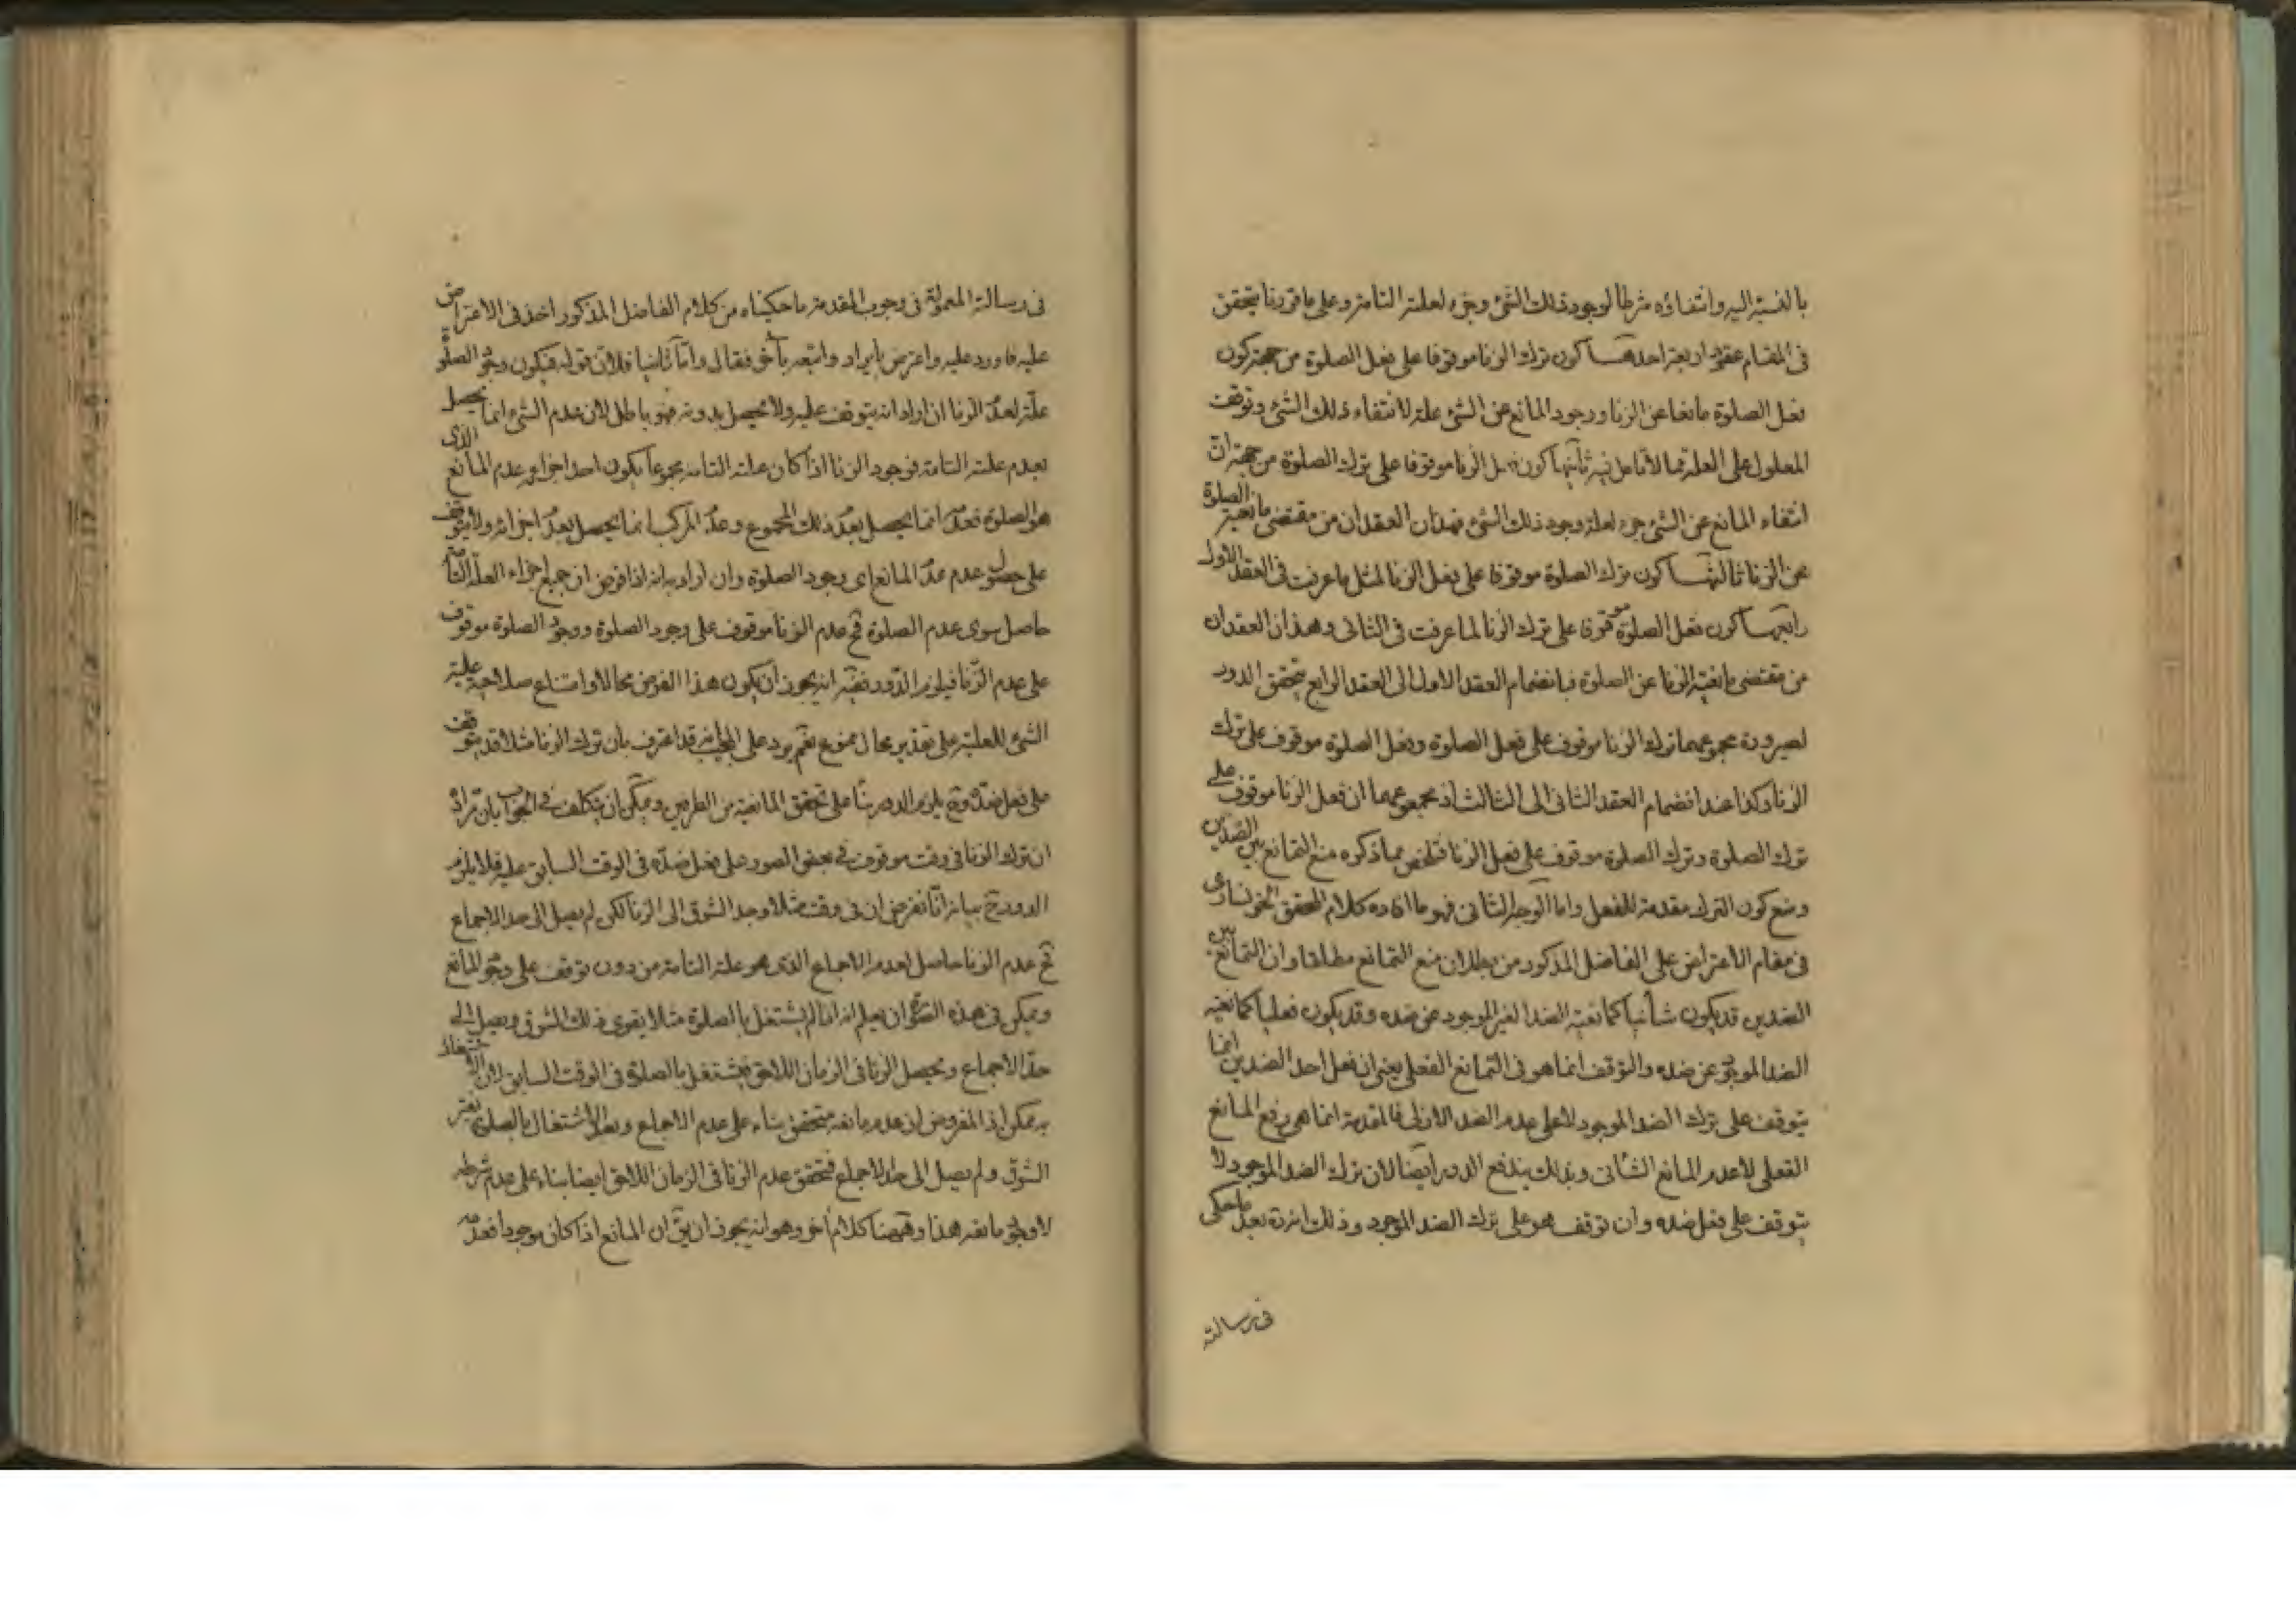 بالنسبة اليه وانتفاؤه شرطا لوجود ذلك الشئ وجزء لعلته التامة وعلى ما قررنا يتحقق
فى المقام عقود اربعة احدها كون ترك الزنا موقوفا على فعل الصلوة من جهة كون
فعل الصلوة مانعا عن الزنا ووجود المانع عن الشئ علة لانتفاء ذلك الشئ وتوقف
المعلول على العلة مما لا تأمل فيه ثانيها كون فعل الزنا موقوفا على ترك الصلوة من جهة ان
انتفاء المانع عن الشئ جزء لعلة وجود ذلك الشئ فهذان العقدان من مقتضى مانعية الصلوة
عن الزنا ثالثها كون ترك الصلوة موقوفا على فعل الزنا لمثل ما عرفت فى العقد الاول
رابعها كون فعل الصلوة موقوفا على ترك الزنا لما عرفت فى الثانى وهذان العقدان
من مقتضى مانعية الزنا عن الصلوة فبانضمام العقد الاول الى العقد الرابع يتحقق الدور
لصيرورة مجموعهما ترك الزنا موقوف على فعل الصلوة وفعل الصلوة موقوف على ترك
الزنا وكذا عند انضمام العقد الثانى الى الثالث اذ مجموعهما ان فعل الزنا موقوف على
ترك الصلوة وترك الصلوة موقوف على فعل الزنا فتلخص مما ذكره منع التمانع بين الضدين
ومنع كون الترك مقدمة للفعل واما الوجه الثانى فهو ما افاده كلام المحقق الخونسارى
فى مقام الاعتراض على الفاضل المذكور من بطلان منع التمانع مطلقا وان التمانع بين
الضدين قد يكون شأنيا كمانعية الضد الغير الموجود عن ضده وقد يكون فعليا كمانعية
الضد الموجود عن ضده والتوقف انما هو فى التمانع الفعلى يعنى ان فعل احد الضدين انما
يتوقف على ترك الضد الموجود لا على عدم الضد الازلى فالمقدمة انما هى رفع المانع
الفعلى لا عدم المانع الشأنى وبذلك يندفع الدور ايضا لان ترك الضد الموجود لا
يتوقف على فعل ضده وان توقف هو على ترك الضد الموجود وذلك انه ره بعد ما حكى
فى رسالته
فى رسالته المعمولة فى وجوب المقدمة ما حكيناه من كلام الفاضل المذكور اخذ فى الاعتراض
عليه فاورد عليه واعترض بايراد واتبعه بآخر فقال واما ثانيا فلان قوله فيكون وجود الصلوة
علة لعدم الزنا ان اراد انه يتوقف عليه ولا يحصل بدونه فهو باطل لان عدم الشئ انما يحصل
بعدم علته التامة فوجود الزنا اذا كان علته التامة مجموعا يكون احد اجزائه عدم المانع الذى
هو الصلوة فعدمه انما يحصل بعدم ذلك المجموع وعدم المركب انما يحصل بعدم اجزائه ولا يتوقف
على حصول عدم عدم المانع اى وجود الصلوة وان اراد به انه اذا فرض ان جميع اجزاء العلة التامة
حاصل سوى عدم الصلوة فح عدم الزنا موقوف على وجود الصلوة ووجود الصلوة موقوف
على عدم الزنا فيلزم الدور ففيه انه يجوز ان يكون هذا الفرض محالا وامتناع صلاحية علية
الشئ للعلية على تقدير محال ممنوع نعم يرد على المجيب انه قد اعترف بان ترك الزنا مثلا قد يتوقف
على فعل ضده وح يلزم الدور بناء على تحقق المانعية من الطرفين ويمكن ان يتكلف فى الجواب بان مراده
ان ترك الزنا فى وقت موقوف فى بعض الصور على فعل ضده فى الوقت السابق عليه فلا يلزم
الدور ح بيانه انا نفرض ان فى وقت مثلا وجد الشوق الى الزنا لكن لم يصل الى حد الاجماع
فح عدم الزنا حاصل لعدم الاجماع الذى هو علته التامة من دون توقف على وجود المانع
ويمكن فى هذه الصورة ان يعلم انه اذا لم يشتغل بالصلوة مثلا يقوى ذلك الشوق ويصل الى
حد الاجماع ويحصل الزنا فى الزمان اللاحق فيشتغل بالصلوة فى الوقت السابق لان الاشتغال
به ممكن اذ المفروض ان عدم مانعه متحقق بناء على عدم الاجماع وبعد الاشتغال بالصلوة
الشوق ولم يصل الى حد الاجماع فتحقق عدم الزنا فى الزمان اللاحق ايضا بناء على عدم شرطه
لا وجود مانعه هذا وههنا كلام آخر وهو انه يجوز ان يق ان المانع اذا كان موجودا فعدمه